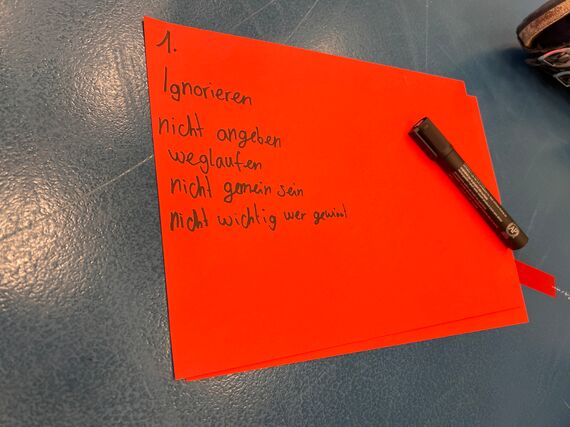 1.
Ignorieren
nicht angeben
weglaufen
nicht gemein sein
nicht wichtig wer gewinnt